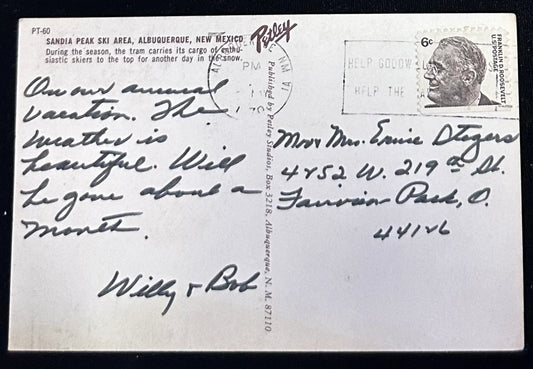 PT-60
SANDIA PEAK SKI AREA, ALBUQUERQUE, NEW MEXICO
During the season, the tram carries its cargo of enthu-
siastic skiers to the top for another day in the snow.
Petley
On our annual
vacation. The
weather is
beautiful. Will
be gone about a
month.
Willy & Bob
Published by Petley Studios, Box 3218, Albuquerque, N. M. 87110
ALBUQUERQUE, NM
PM
HELP GOODW
HELP THE
6c
FRANKLIN D. ROOSEVELT
U.S. POSTAGE
Mr & Mrs. Ernie Stegers
4252 W. 219 th St.
Fairview Park, O.
44126